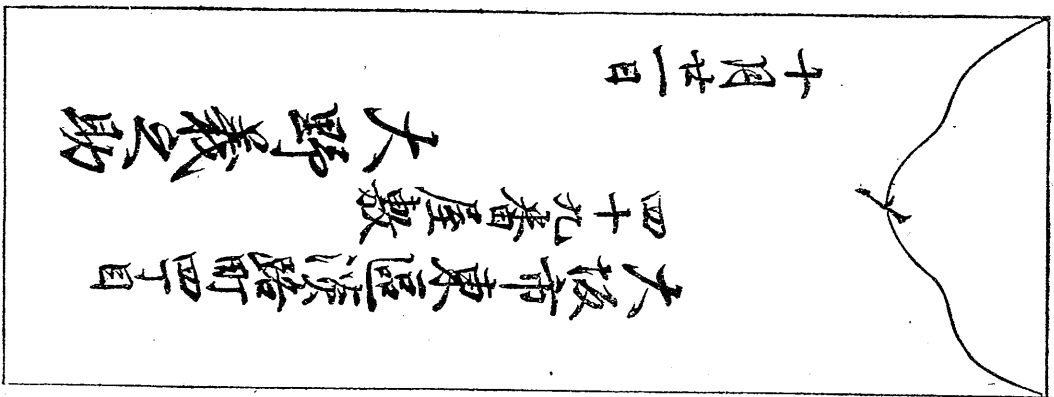 〆
大阪市東區淡路町四丁目
四十九番屋敷
大野義之助
十月廿一日